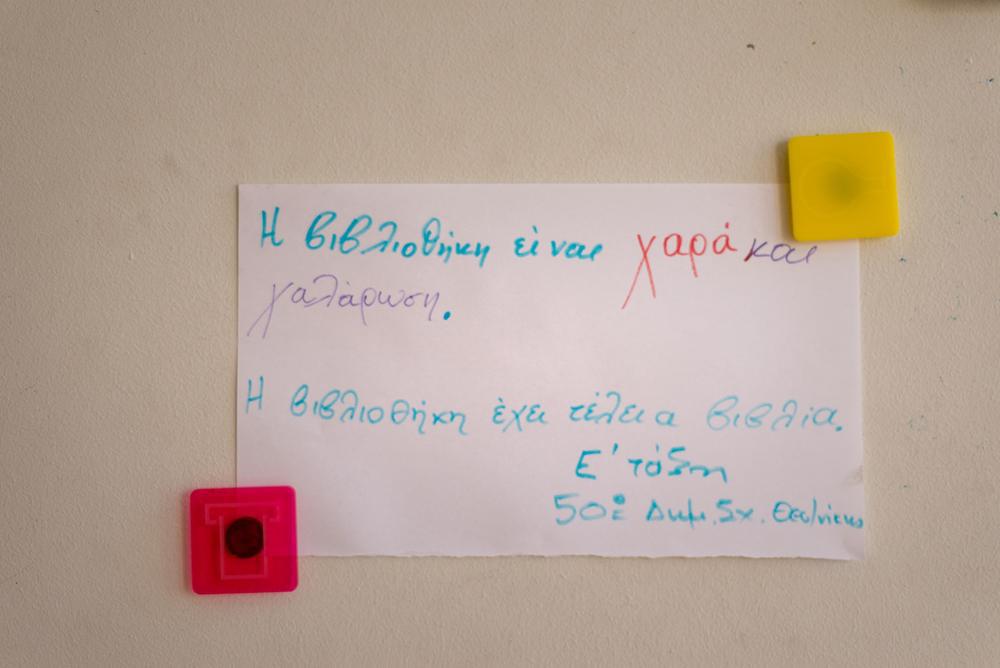 Η βιβλιοθήκη είναι χαρά και
χαλάρωση.
Η βιβλιοθήκη έχει τέλεια βιβλία.
Ε' τάξη
50ο Δημ. Σχ. Θεσ/νίκης
T